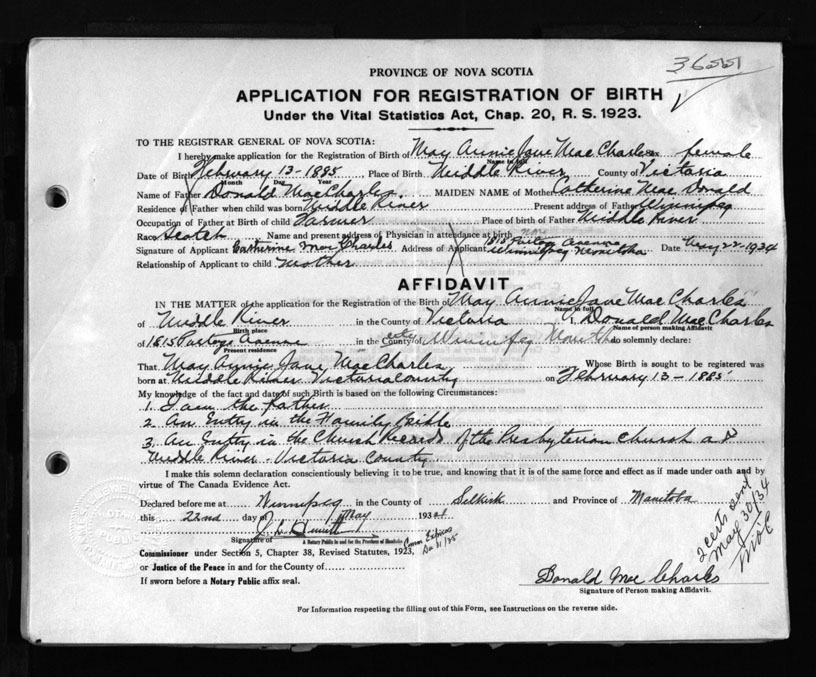 36551
PROVINCE OF NOVA SCOTIA
APPLICATION FOR REGISTRATION OF BIRTH
Under the Vital Statistics Act, Chap. 20, R. S. 1923.
TO THE REGISTRAR GENERAL OF NOVA SCOTIA:
I hereby make application for the Registration of Birth of May Annie Jane MacCharles female
Name in full
Date of Birth February 13 - 1885 Place of Birth Middle River County of Victoria
Month Day Year
Name of Father Donald MacCharles MAIDEN NAME of Mother Catherine MacDonald
Residence of Father when child was born Middle River Present address of Father Winnipeg
Occupation of Father at Birth of child Farmer Place of birth of Father Middle River
Race Scotch Name and present address of Physician in attendance at birth none
Signature of Applicant Catherine MacCharles Address of Applicant 1615 Portage Avenue Winnipeg Manitoba Date May 22 - 1934
Relationship of Applicant to child Mother
AFFIDAVIT
IN THE MATTER of the application for the Registration of the Birth of May Annie Jane MacCharles
Name in full
of Middle River in the County of Victoria I, Donald MacCharles
Birth place Name of person making Affidavit
of 1615 Portage Avenue in the County of city Winnipeg do solemnly declare:
Present residence
That May Annie Jane MacCharles Whose Birth is sought to be registered was
born at Middle River Victoria County on February 13 - 1885
My knowledge of the fact and date of such Birth is based on the following Circumstances:
1. I am the father
2. An Entry in the Family Bible
3. An Entry in the Church Records of the Presbyterian Church at
Middle River - Victoria County
I make this solemn declaration conscientiously believing it to be true, and knowing that it is of the same force and effect as if made under oath and by
virtue of The Canada Evidence Act.
Declared before me at Winnipeg in the County of Selkirk and Province of Manitoba
this 22nd day of May 1934
Signature of
A Notary Public in and for the Province of Manitoba
Comm Expires Dec 31/35
Commissioner under Section 5, Chapter 38, Revised Statutes, 1923,
or Justice of the Peace in and for the County of
If sworn before a Notary Public affix seal.
2 certs sent
May 30/34
Donald MacCharles
Signature of Person making Affidavit.
For Information respecting the filling out of this Form, see Instructions on the reverse side.